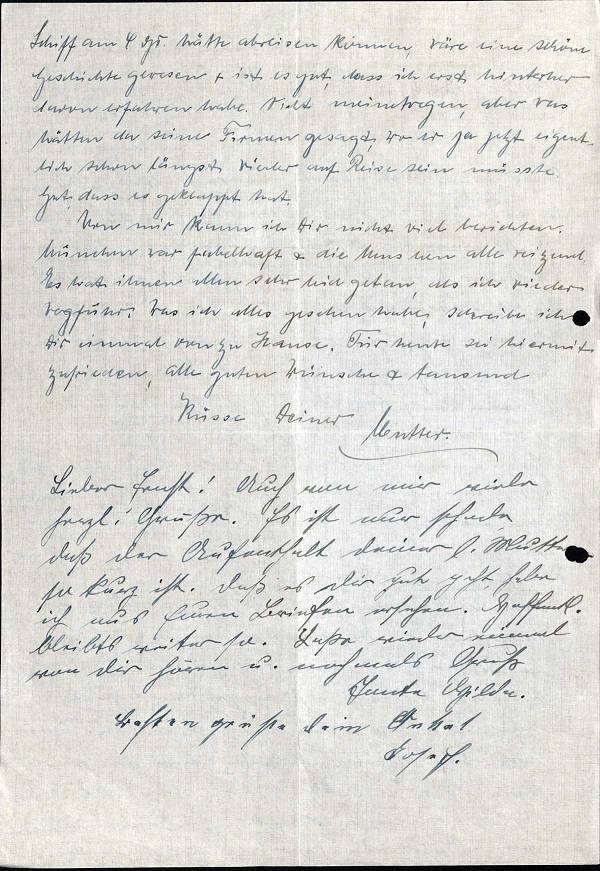 Schiff am 4 ds. hätte abreisen können, wäre eine schöne
Geschichte gewesen & ist es gut, dass ich erst hinterher
davon erfahren habe. Nicht meinetwegen, aber was
hätten da seine Firmen gesagt, wo er ja jetzt eigent-
lich schon längst wieder auf Reise sein müsste.
Gut, dass es geklappt hat.
Von mir kann ich Dir nicht viel berichten.
München war fabelhaft & die Menschen alle reizend.
Es hat ihnen allen sehr leid getan, als ich wieder
wegfuhr. Was ich alles gesehen habe, schreibe ich
Dir einmal von zu Hause. Für heute sei hiermit
zufrieden, alle guten Wünsche & tausend
Küsse Deiner Mutter.
Lieber Ernst! Auch von mir viele
herzl. Grüße. Es ist nur schade
daß der Aufenthalt deiner l. Mutter
so kurz ist. Daß es dir gut geht, habe
ich aus Euren Briefen ersehen. Hoffentl.
bleibts weiter so. Laße wieder einmal
von dir hören u. nochmals Gruß
Tante Hilda.
Besten Grüße dein Onkel
Josef.